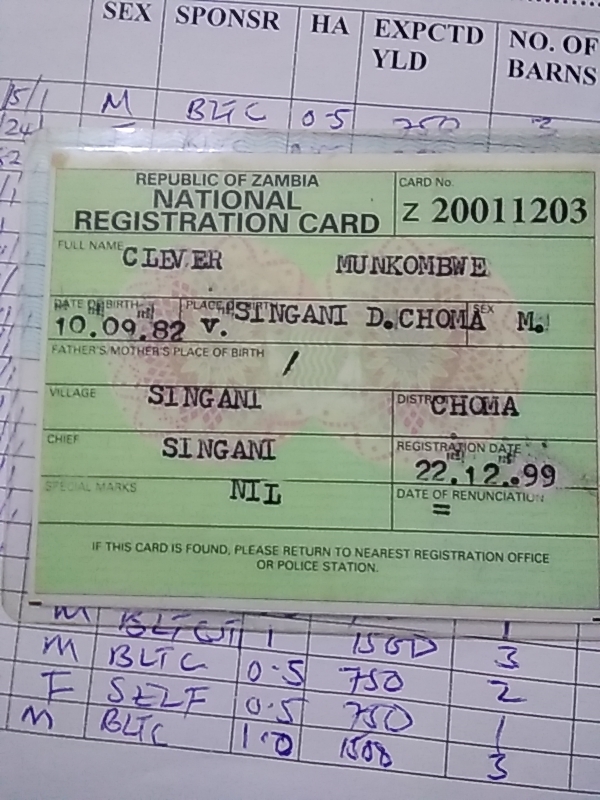 SEX SPONSR HA EXPCTD YLD NO. OF BARNS
M BLTC 0.5 750 3
REPUBLIC OF ZAMBIA
NATIONAL
REGISTRATION CARD
CARD No.
Z 20011203
FULL NAME
CLEVER MUNKOMBWE
DATE OF BIRTH PLACE OF BIRTH SEX
10.09.82 V. SINGANI D. CHOMA M.
FATHER'S/MOTHER'S PLACE OF BIRTH
/
VILLAGE SINGANI DISTRICT CHOMA
CHIEF SINGANI
REGISTRATION DATE
22.12.99
SPECIAL MARKS NIL
DATE OF RENUNCIATION
=
IF THIS CARD IS FOUND, PLEASE RETURN TO NEAREST REGISTRATION OFFICE
OR POLICE STATION.
M 1 1500 1
M BLTC 0.5 750 3
F SELF 0.5 750 2
M BLTC 1.0 1500 1
3